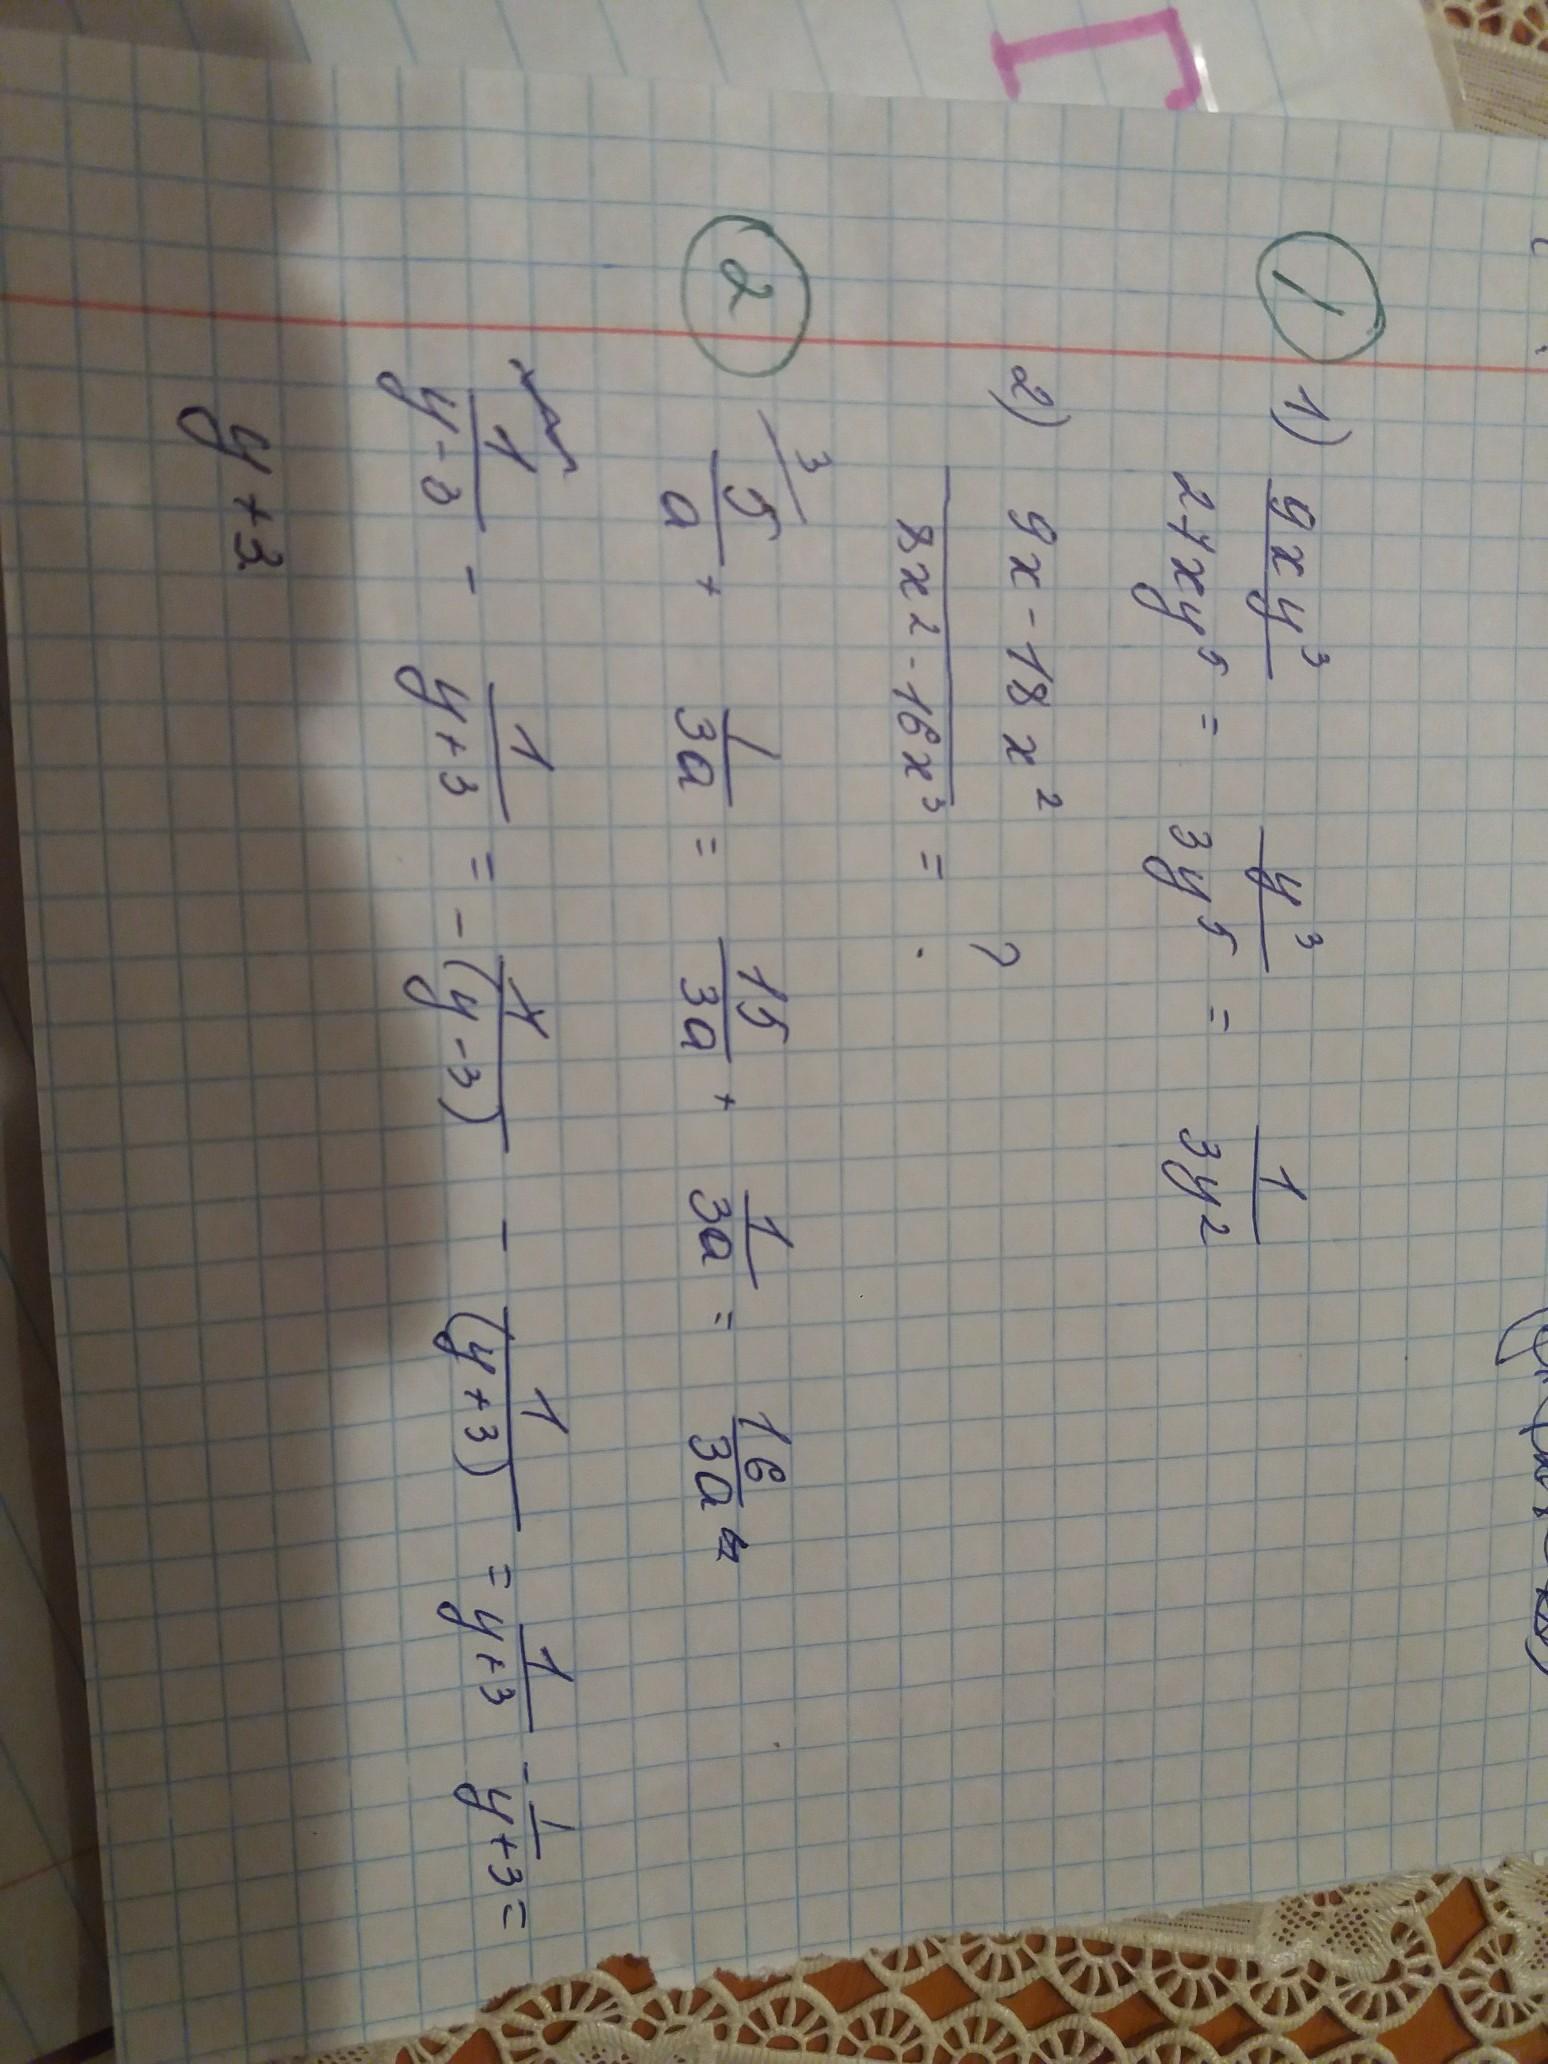 1 1) 9xy³/27xy⁵ = y³/3y⁵ = 1/3y²
2) 9x-18x²/8x²-16x³ = ?
2 3 5/a + 1/3a = 15/3a + 1/3a = 16/3a
1/y-3 - 1/y+3 = -1/(y-3) - 1/(y+3) = 1/y+3 - 1/y+3 =
y+3